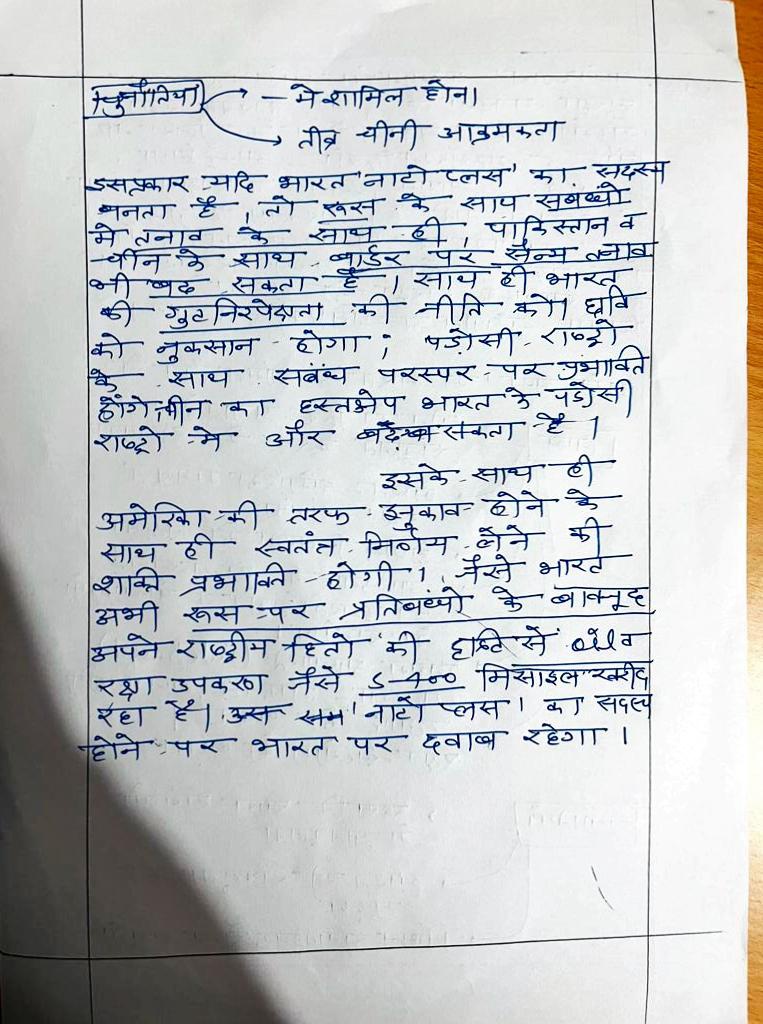 चुनौतिया → - मे शामिल होना
→ तीव्र चीनी आक्रमकता
इसप्रकार यदि भारत 'नाटो प्लस' का सदस्य
बनता है, तो रूस के साथ संबंधो
मे तनाव के साथ ही, पाकिस्तान व
चीन के साथ बार्डर पर सैन्य तनाव
भी बढ सकता है। साथ ही भारत
की गुटनिरपेक्षता की नीति की छवि
को नुकसान होगा; पड़ोसी राष्ट्रो
के साथ सबंध परस्पर पर प्रभावित
होंगे, चीन का हस्तक्षेप भारत के पड़ोसी
राष्ट्रो मे और बढ़ सकता है।
इसके साथ ही
अमेरिका की तरफ झुकाव होने के
साथ ही स्वतंत्र निर्णय लेने की
शक्ति प्रभावित होगी। जैसे भारत
अभी रूस पर प्रतिबंधो के बावजूद
अपने राष्ट्रीय हितो की दृष्टि से oil व
रक्षा उपकरण जैसे S-400 मिसाइल खरीद
रहा है। उस 'नाटो प्लस' का सदस्य
होने पर भारत पर दवाब रहेगा।